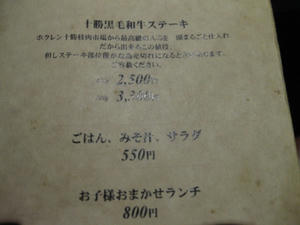 十勝黒毛和牛ステーキ
ホクレン十勝枝肉市場から最高級の
頭まるごと仕入れ
だから出来るこの値段。
但しステーキ部位僅かな為売切れになると
ご容赦ください。
2,500円
ごはん、みそ汁、サラダ
550円
お子様おまかせランチ
800円